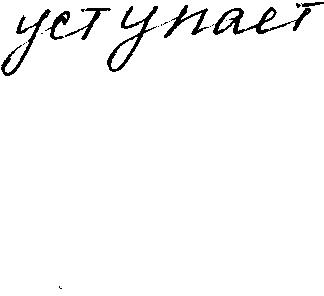 уступает